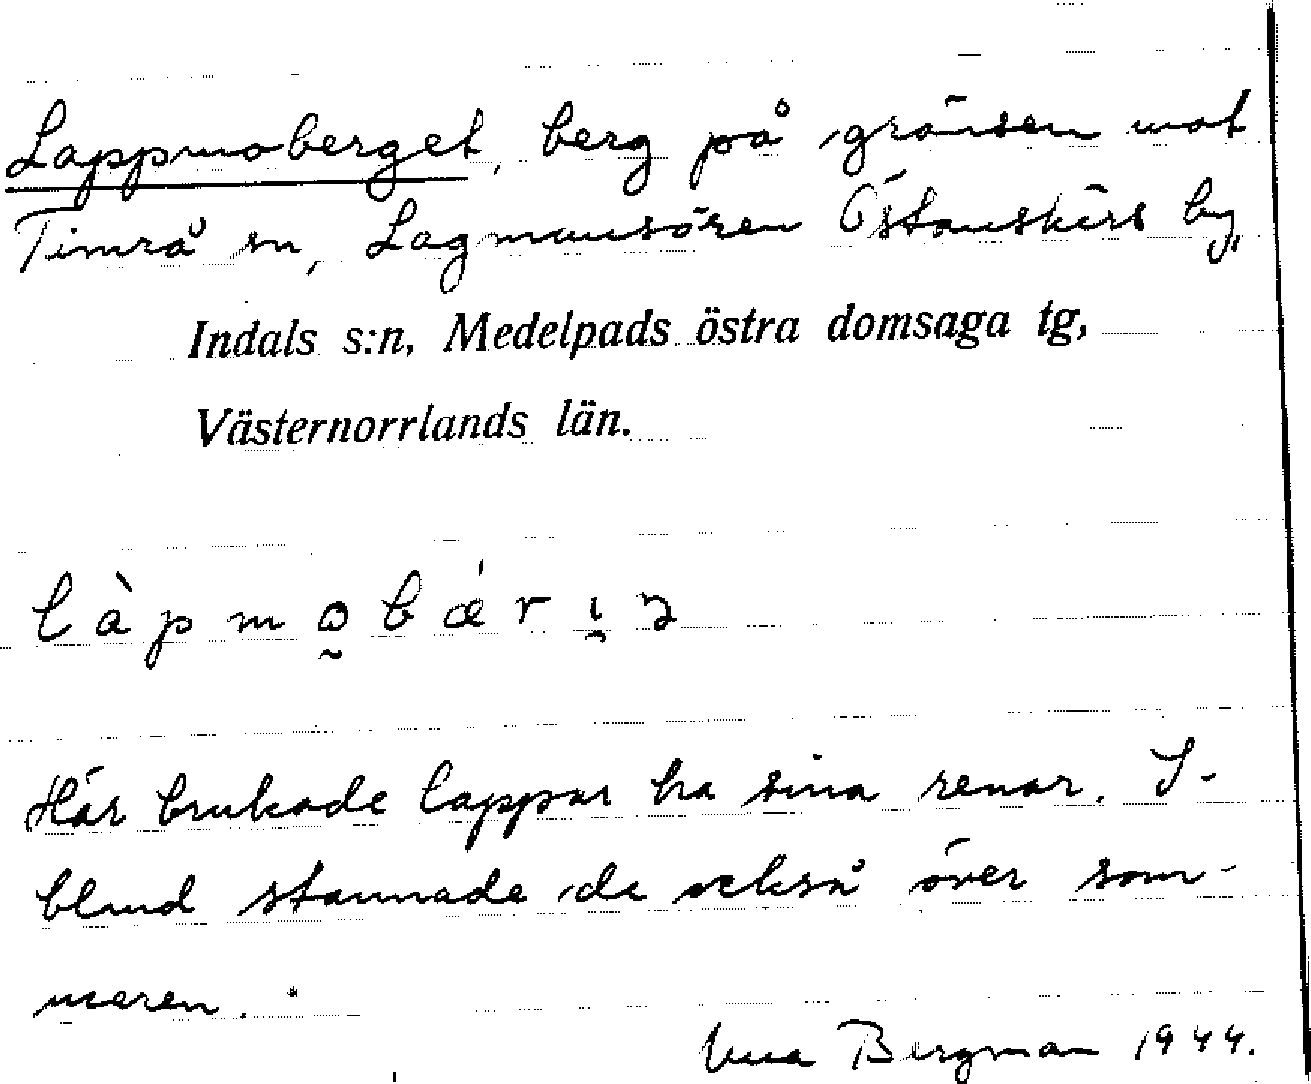 Lappmoberget, berg på gränsen mot
Timrå sn, Lagmansören Östanskärs by,
Indals s:n, Medelpads östra domsaga tg,
Västernorrlands län.
làpmo̰bǽrı̰n
Här brukade lappar ha sina renar. I-
bland stannade de också över som-
maren.
Bergman 1944.